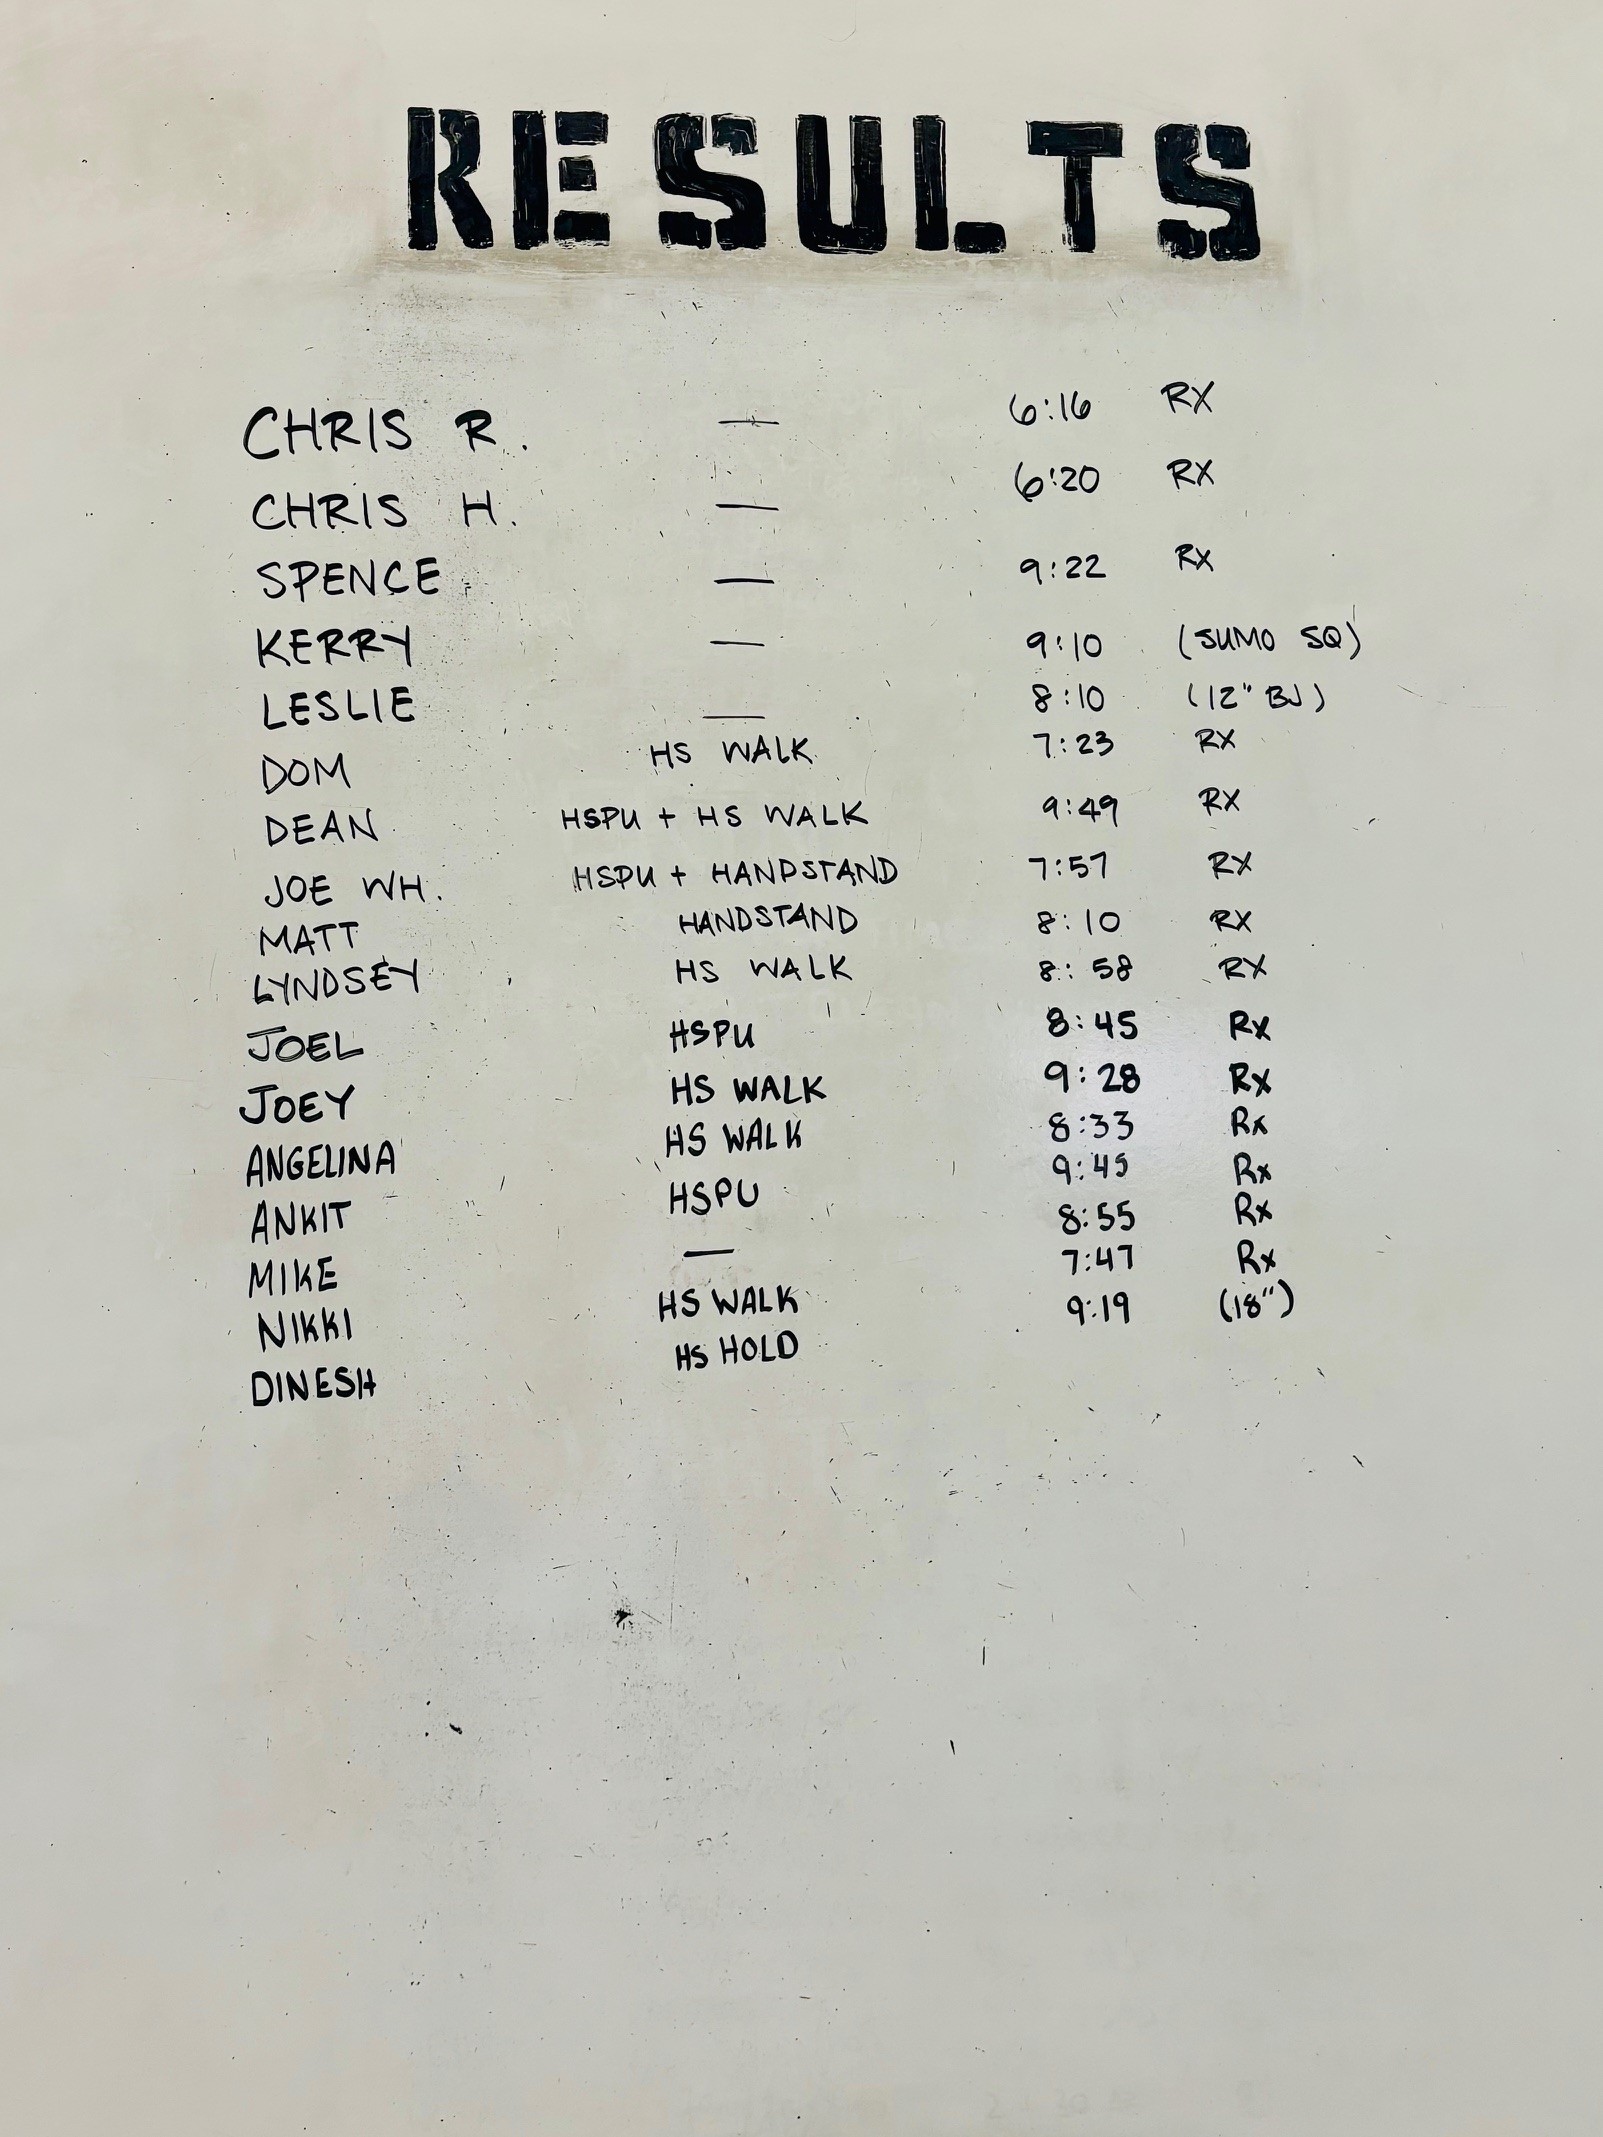 RESULTS
CHRIS R. — 6:16 RX
CHRIS H. — 6:20 RX
SPENCE — 9:22 RX
KERRY — 9:10 (SUMO SQ)
LESLIE — 8:10 (12" BJ)
DOM HS WALK 7:23 RX
DEAN HSPU + HS WALK 9:49 RX
JOE WH. HSPU + HANDSTAND 7:57 RX
MATT HANDSTAND 8:10 RX
LYNDSEY HS WALK 8:58 RX
JOEL HSPU 8:45 Rx
JOEY HS WALK 9:28 Rx
ANGELINA HS WALK 8:33 Rx
ANKIT HSPU 9:45 Rx
MIKE — 8:55 Rx
NIKKI HS WALK 7:47 Rx
DINESH HS HOLD 9:19 (18")